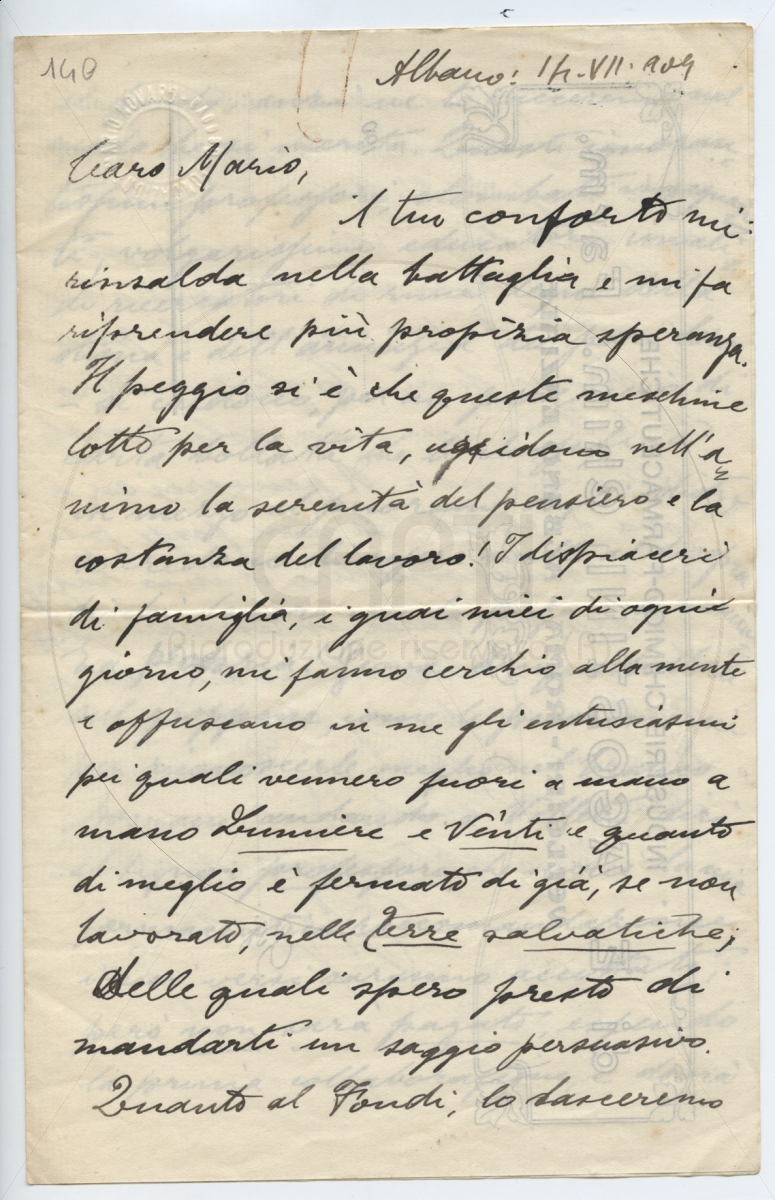 140
Albano: 14.VII.909
Caro Mario,
il tuo conforto mi
rinsalda nella battaglia e mi fa
riprendere più propizia speranza.
Il peggio si è che queste meschine
lotte per la vita, uccidono nell'a
nimo la serenità del pensiero e la
costanza del lavoro! I dispiaceri
di famiglia, i guai miei di ogni
giorno, mi fanno cerchio alla mente
e offuscano in me gli entusiasmi
pei quali vennero fuori a mano a
mano Lumiere e Vènti e quanto
di meglio è fermato di già, se non
lavorato, nelle Terre salvatiche;
Delle quali spero presto di
mandarti un saggio persuasivo.
Quanto al Fondi, lo lasceremo